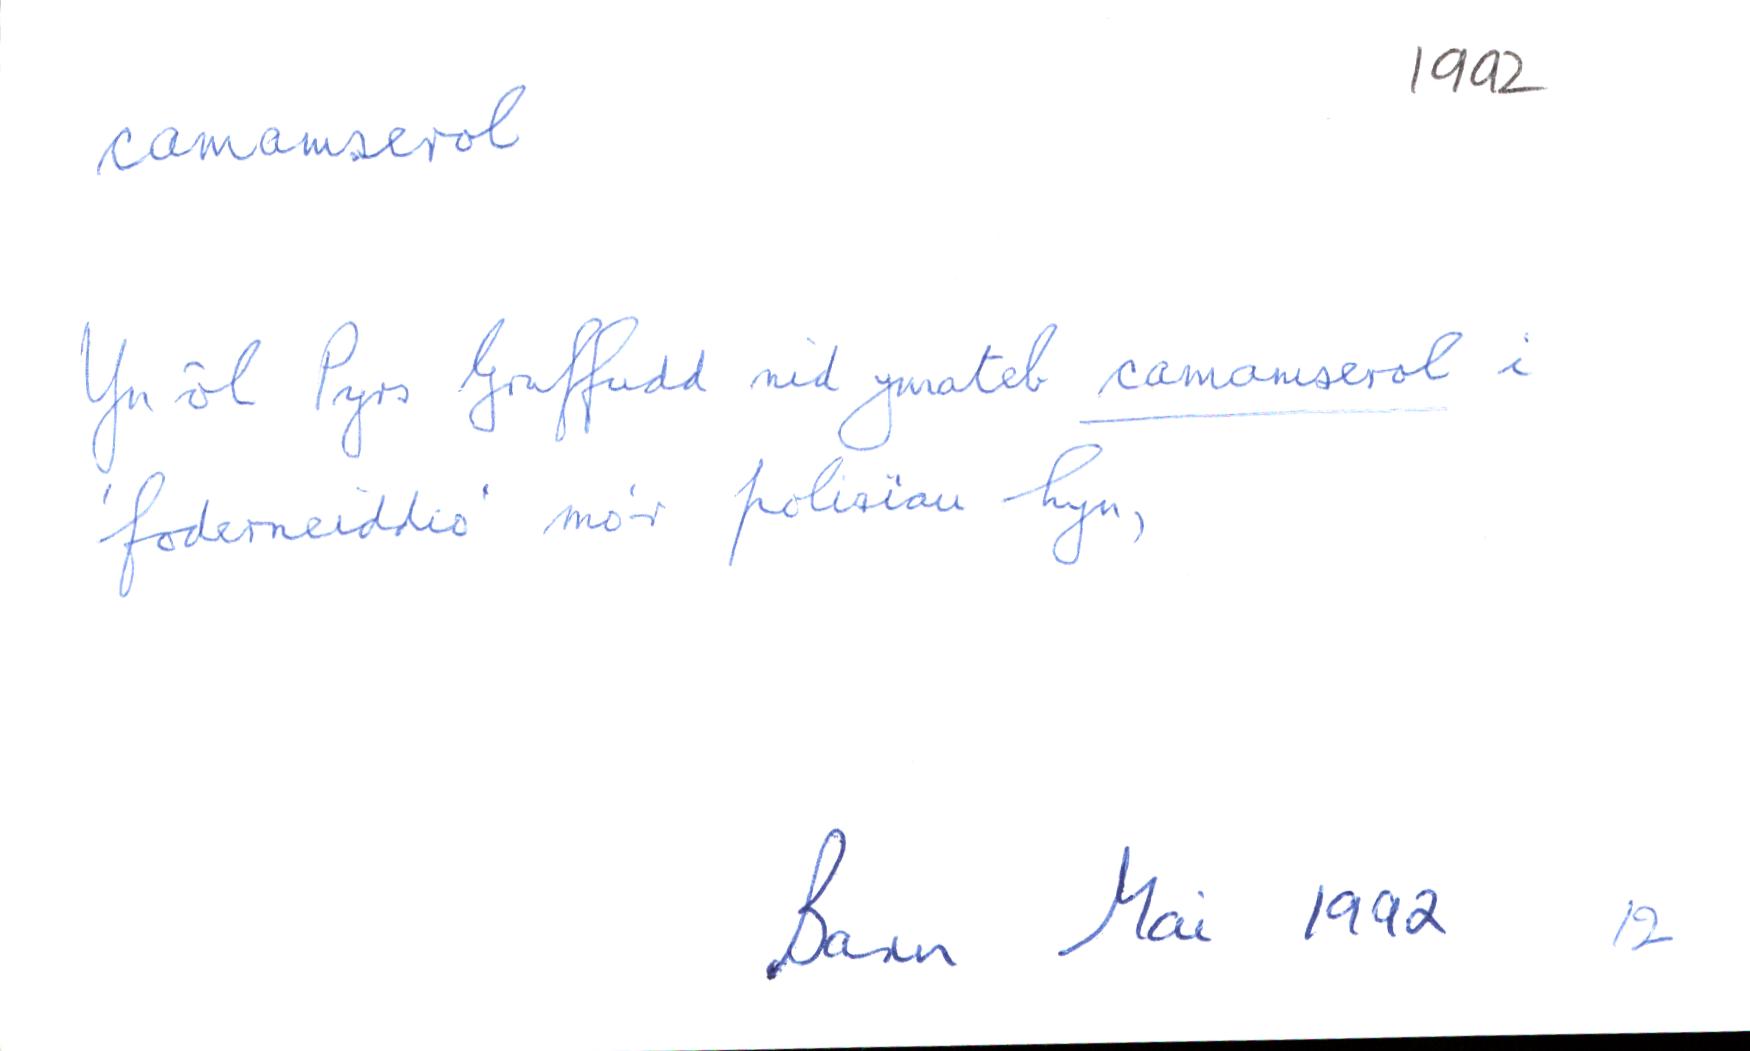 1992
camamserol
Yn ôl Pyrs Gruffudd nid ymateb camamserol i
'foderneiddio' mo'r polisïau hyn,
Barn Mai 1992 12